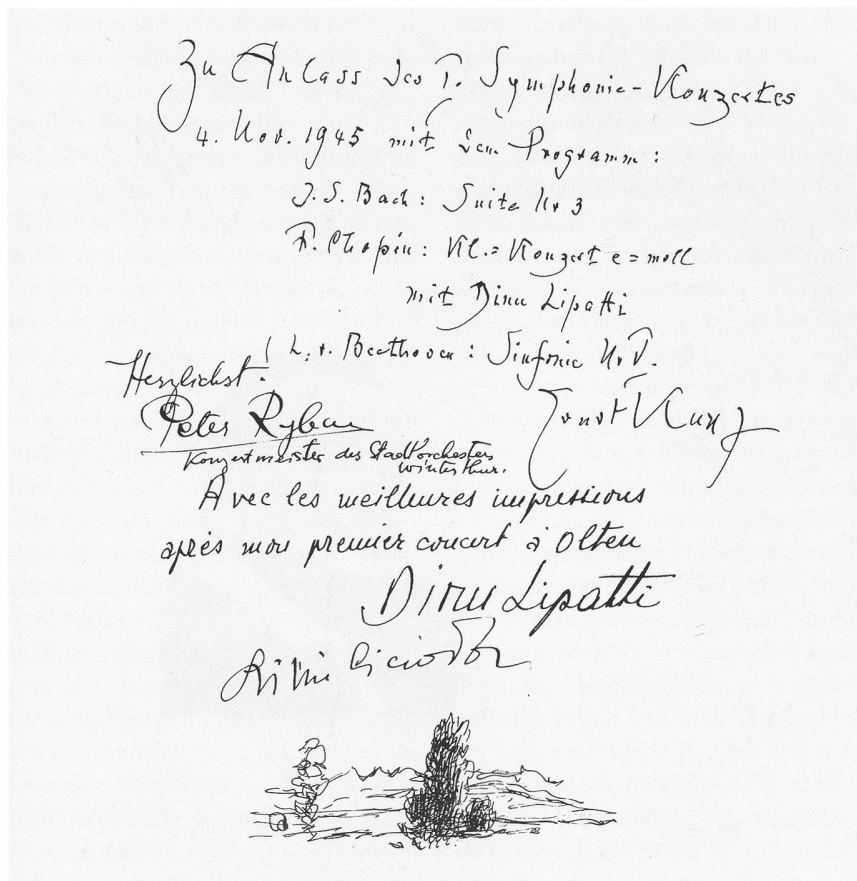 Zu Anlass des I. Symphonie-Konzertes
4. Nov. 1945 mit dem Programm:
J. S. Bach: Suite Nr 3
F. Chopin: Kl.=Konzert e=moll
mit Dinu Lipatti
L. v. Beethoven: Sinfonie Nr I.
Herzlichst!
Peter Rybar
Konzertmeister des Stadtorchesters
Winterthur.
Ernst Kunz
Avec les meilleures impressions
après mon premier concert à Olten
Dinu Lipatti